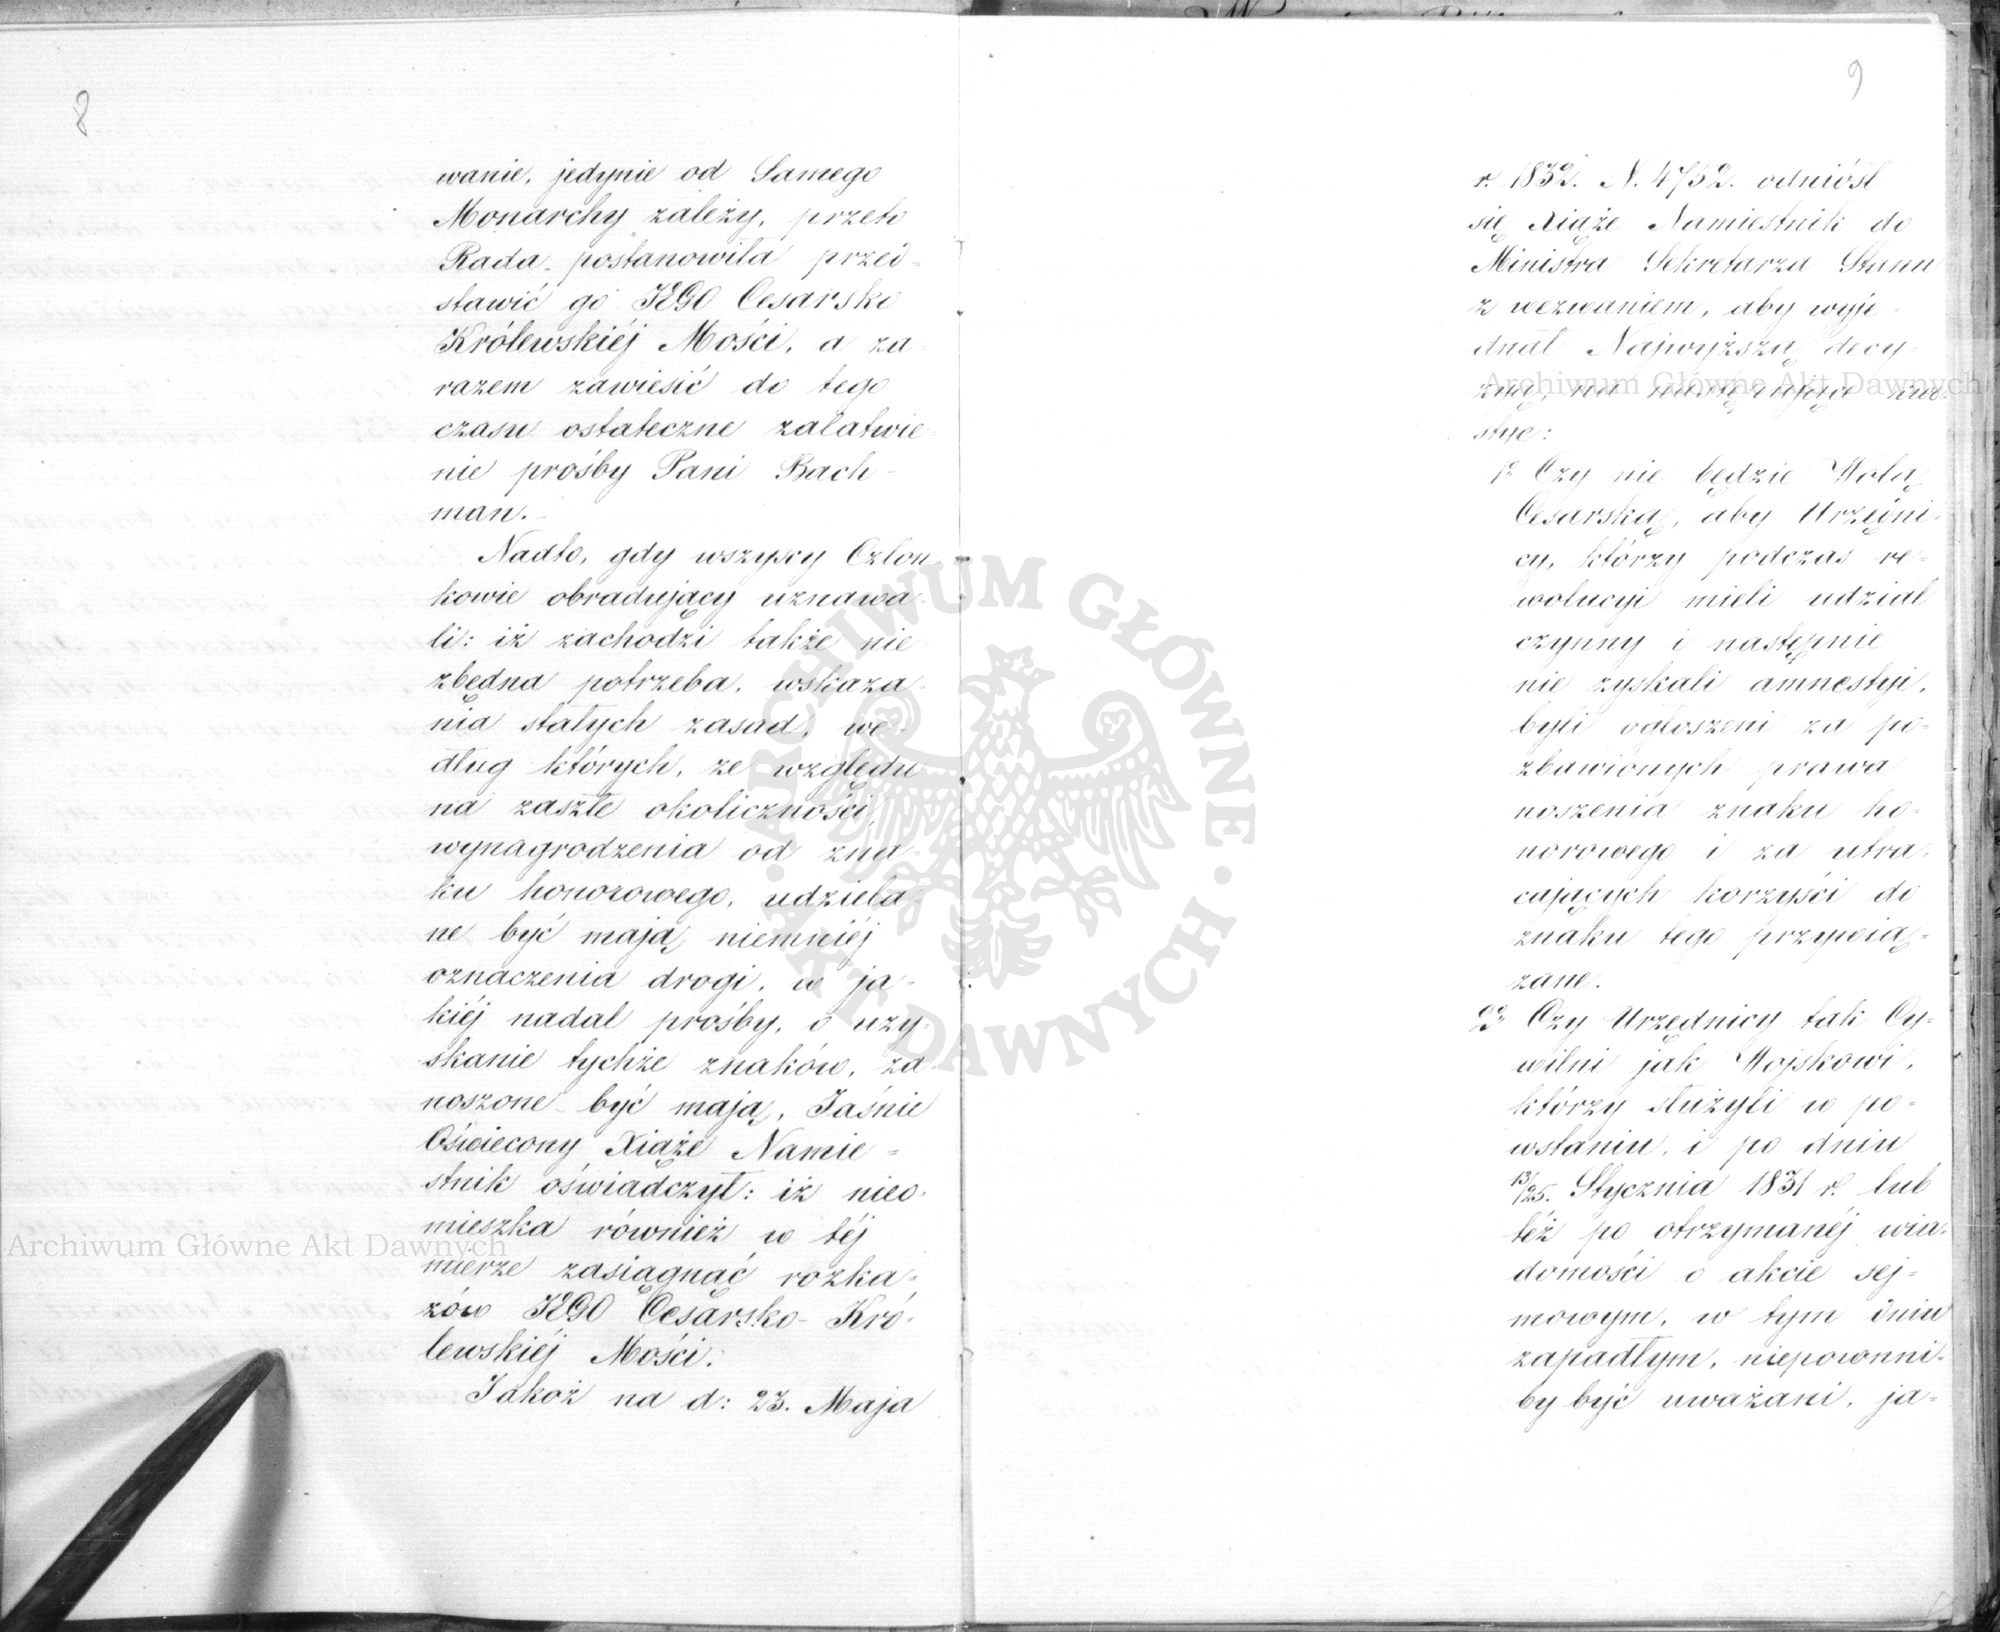 8
wanie, jedynie od Samego
Monarchy zależy, przeto
Rada postanowiła przed-
stawić go JEGO Cesarsko
Królewskiéj Mości, a za-
razem zawiesić do tego
czasu ostateczne załatwie-
nie prośby Pani Bach-
man.
Nadto, gdy wszyscy Człon-
kowie obradujący uznawa-
li: iż zachodzi także nie-
zbędna potrzeba, wskaza-
nia stałych zasad, we-
dług których, ze względu
na zaszłe okoliczności,
wynagrodzenia od zna-
ku honorowego, udziela-
ne być mają niemniéj
oznaczenia drogi, w ja-
kiéj nadal prośby, o uzy-
skanie tychże znaków, za-
noszone być mają, Jaśnie
Oświecony Xiąże Namie-
stnik oświadczył: iż nieo-
mieszka również w téj
mierze zasiągnąć rozka-
zów JEGO Cesarsko-Kró-
lewskiéj Mości.
Jakoż na d: 23. Maja
9
r. 1832. N. 4752. odniósł
się Xiąże Namiestnik do
Ministra Sekretarza Stanu
z wezwaniem, aby wyje-
dnał Najwyższą decy-
zyę, na następujące kwe-
stye:
1° Czy nie będzie Wolą
Cesarską, aby Urzędni-
cy, którzy podczas re-
wolucyi mieli udział
czynny i następnie
nie zyskali amnestyi,
byli ogłoszeni za po-
zbawionych prawa
noszenia znaku ho-
norowego i za utra-
cających korzyści do
znaku tego przywią-
zane.
2° Czy Urzędnicy tak Cy-
wilni jak Wojskowi,
którzy służyli w po-
wstaniu, i po dniu
13/25. Stycznia 1831 r. lub
téż po otrzymanéj wia-
domości o akcie sej-
mowym, w tym dniu
zapadłym, niepowinni-
by być uważani, ja-
ARCHIWUM GŁÓWNE AKT DAWNYCH
Archiwum Główne Akt Dawnych
Archiwum Główne Akt Dawnych